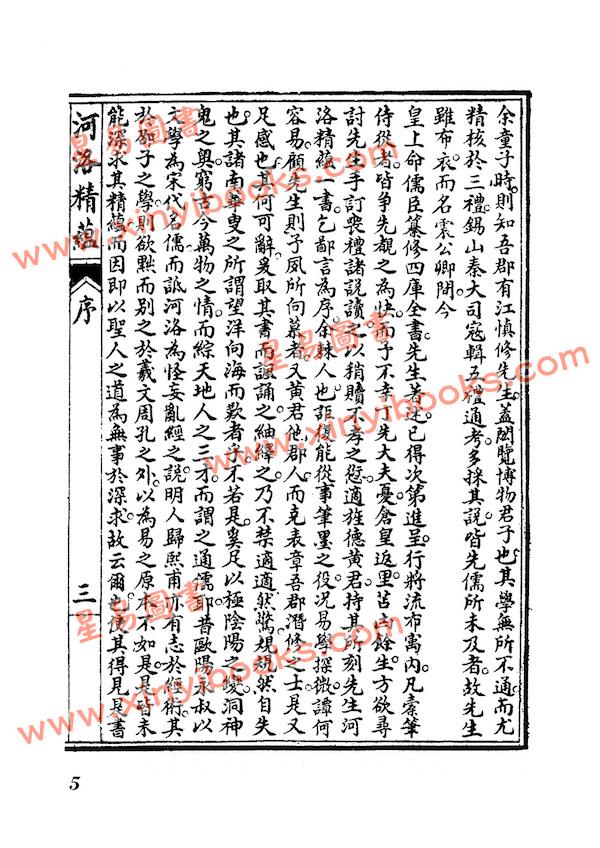 余童子時則知吾郡有江慎修先生蓋閎覽博物君子也其學無所不通而尤
精核於三禮錫山秦大司寇輯五禮通考多採其說皆先儒所未及者故先生
雖布衣而名震公卿間今
皇上命儒臣纂修四庫全書先生著述已得次第進呈行將流布寓內凡橐筆
侍從者皆争先覩之為快而予不幸丁先大夫憂倉皇返里苫凷餘生方欲尋
討先生手訂喪禮諸說讀之以稍贖不孝之愆適旌德黄君持其所刻先生河
洛精蘊一書乞鄙言為序余棘人也詎復能從事筆墨之役况易學探微譚何
容易顧先生則予夙所向慕者又黄君他郡人而克表章吾郡潛修之士是又
足感也其何可辭爰取其書而諷誦之紬繹之乃不禁適適然驚規規然自失
也其諸南華叟之所謂望洋向海而歎者乎不若是奚足以極陰陽之變洞神
鬼之奥窮古今萬物之情而綜天地人之三才而謂之通儒耶昔歐陽永叔以
文學為宋代名儒而詆河洛為怪妄亂經之說明人歸熙甫亦有志於經術其
於邵子之學則欲黜而别之於羲文周孔之外以為易之原本不如是是皆未
能深求其精蘊而因即以聖人之道為無事於深求故云爾也使其得見是書
河洛精蘊
序
三
5
星易圖書
www.xinyibooks.com
星易圖書
www.xinyibooks.com
星易圖書
www.xinyibooks.com